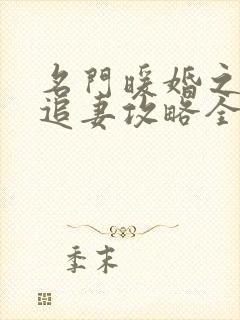 名門暖婚之
追妻攻略全
季末